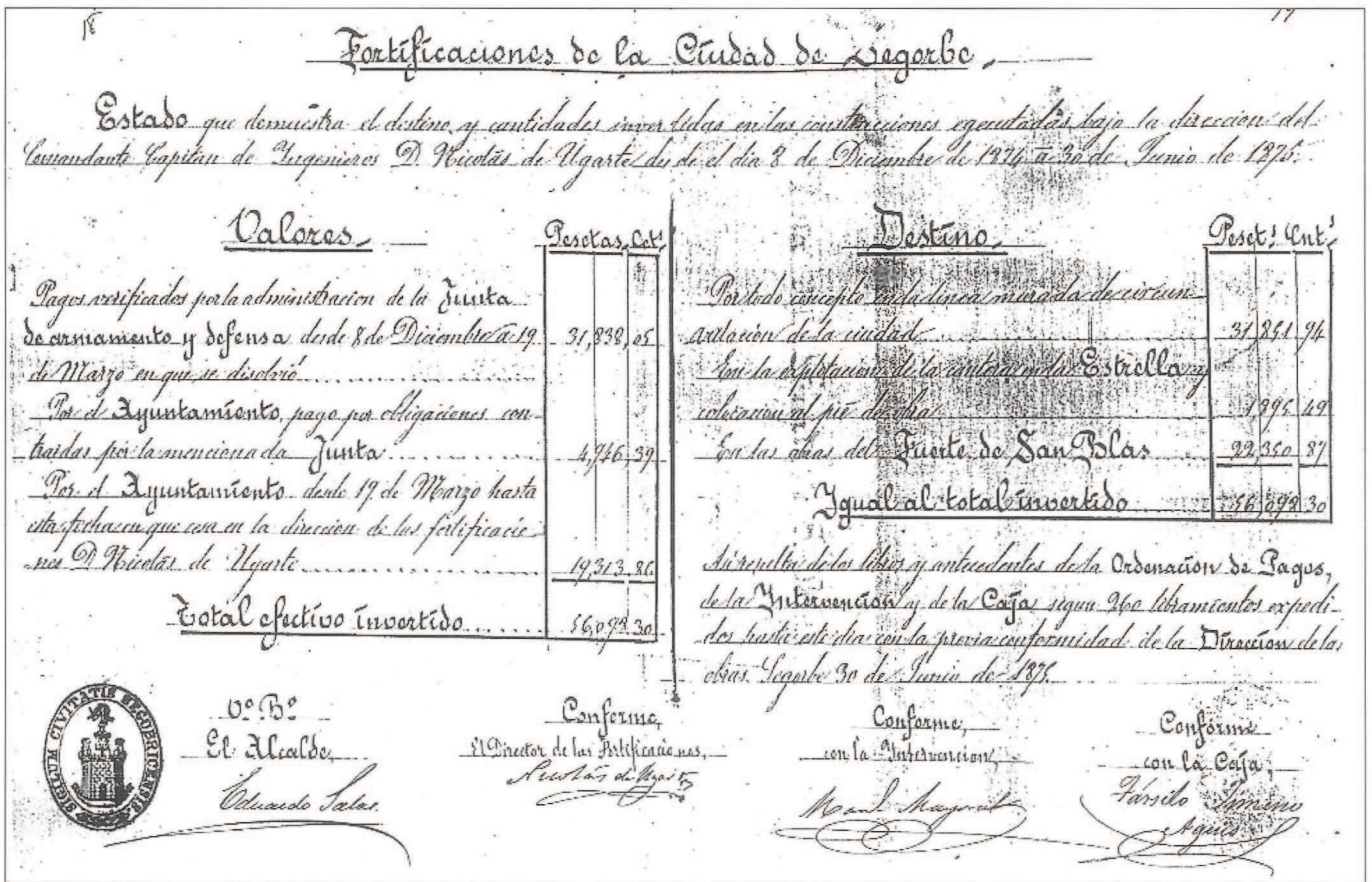 18
17
Fortificaciones de la Ciudad de Segorbe
Estado que demuestra el destino y cantidades invertidas en las construcciones egecutadas bajo la direccion del
Comandante Capitan de Ingenieros D. Nicolás de Ugarte desde el dia 8 de Diciembre de 1874 a 30 de Junio de 1875.
Valores Pesetas Cet.s
Pagos verificados por la administracion de la Junta
de armamento y defensa desde 8 de Diciembre a 19 31,838,05
de Marzo en que se disolvió
Por el Ayuntamiento, pago por obligaciones con-
traidas por la mencionada Junta 4,946,39
Por el Ayuntamiento desde 19 de Marzo hasta
esta fecha en que cesa en la direccion de las fortificacio-
nes D. Nicolás de Ugarte 19,313,86
Total efectivo invertido 56,098,30
Destino Peset.s Cnt.s
Por todo concepto en la linea murada de circun-
valacion de la ciudad 31,851 94
En la explotacion de la cantera en la Estrella y
colocacion al pié de obra 1,895 49
En las obras del Fuerte de San Blas 22,350 87
Ygual al total invertido 56,098 30
Asi resulta de los libros y antecedentes de la Ordenación de Pagos,
de la Yntervención y de la Caja, segun 260 libramientos expedi-
dos hasta este dia con la previa conformidad de la Dirección de las
obras. Segorbe 30 de Junio de 1875.
SIGILUM CIVITATIS SEGOBRICENSIS
Vº Bº
El Alcalde,
Eduardo Salas.
Conforme,
El Director de las Fortificaciones,
Nicolás de Ugarte
Conforme,
con la Intervencion,
Mayoral
Conforme
con la Caja,